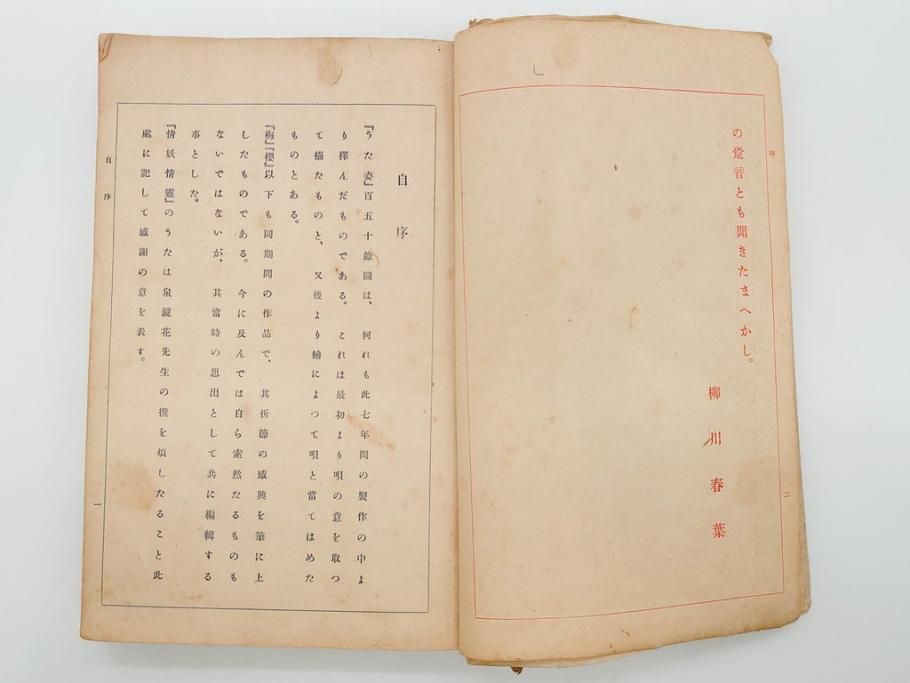 序
の跫音とも聞きたまへかし。
柳川春葉
二
自序
『うた姿』百五十餘圖は、何れも此七年間の製作の中よ
り擇んだものである。これは最初より唄の意を取つ
て描たものと、又後より繪によつて唄と當てはめた
ものとある。
『梅』『櫻』以下も同期間の作品で、其折節の感興を筆に上
したものである。今に及んでは自ら索然たるものも
ないではないが、其當時の思出として共に編輯する
事とした。
『情妖情靈』のうたは泉鏡花先生の撰を煩したること此
處に記して感謝の意を表す。
自序
一